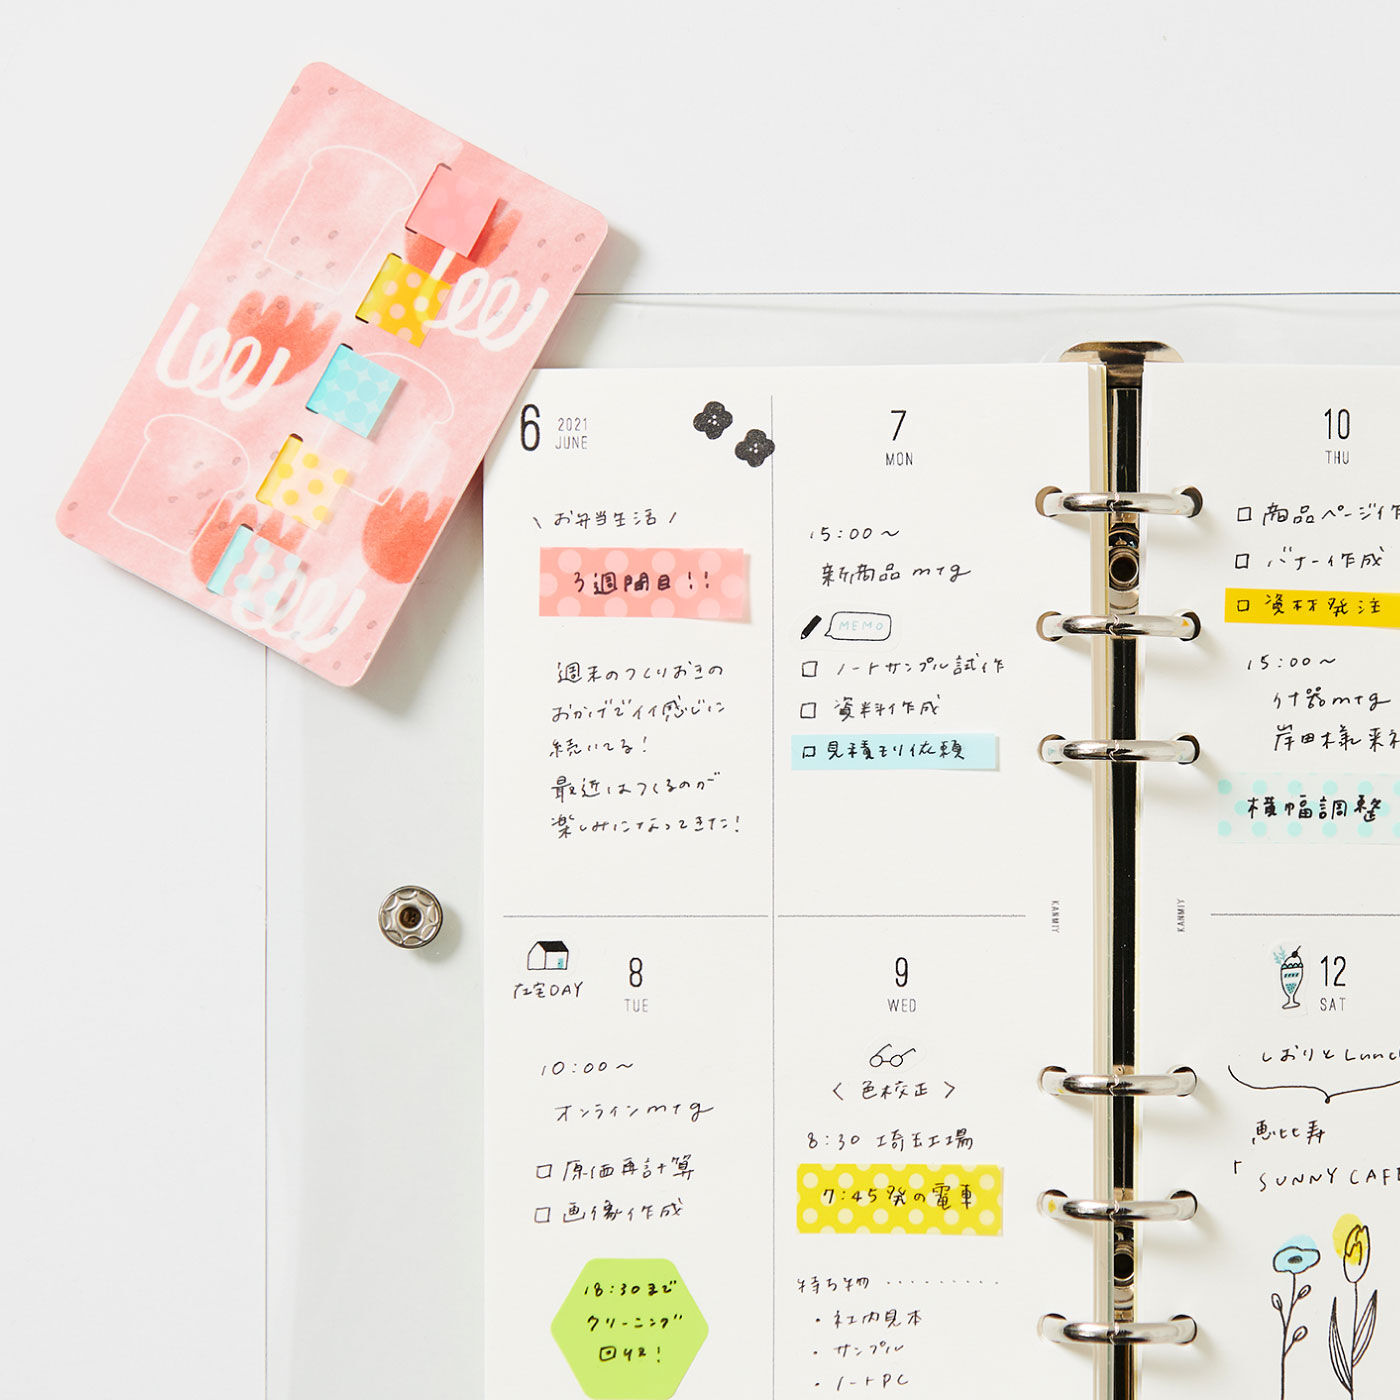 6
2021
JUNE
\ お弁当生活 /
3週間目!!
週末のつくりおきの
おかげでイイ感じに
続いてる!
最近はつくるのが
楽しみになってきた!
7
MON
15:00〜
新商品mtg
MEMO
□ ノートサンプル試作
□ 資料作成
□ 見積もり依頼
8
TUE
在宅DAY
10:00〜
オンラインmtg
□ 原価再計算
□ 画像作成
18:30まで
クリーニング
回収!
9
WED
< 色校正 >
8:30 埼玉工場
7:45発の電車
持ち物 ..........
・社内見本
・サンプル
・ノートPC
KANMIY
KANMIY
10
THU
□ 商品ページ作
□ バナー作成
□ 資材発注
15:00〜
什器mtg
岸田様来社
横幅調整
12
SAT
しおりとLunch
恵比寿
「SUNNY CAFE